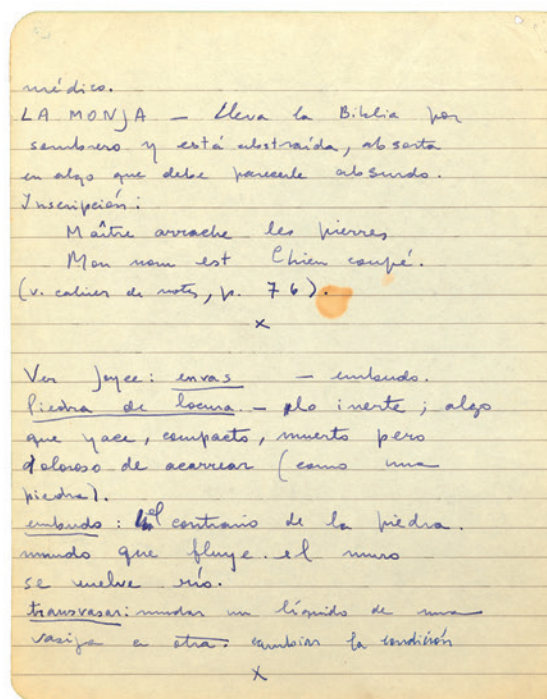 médico.
LA MONJA — lleva la Biblia por
sombrero y está abstraída, absorta
en algo que debe parecerle absurdo.
Inscripción:
Maître arrache les pierres
Mon nom est Chien coupé.
(v. cahier de notes, p. 76).
x
Ver Joyce: envas — embudo.
Piedra de locura. — plo inerte; algo
que yace, compacto, muerto pero
doloroso de acarrear (como una
piedra).
embudo: el contrario de la piedra.
mundo que fluye. el muro
se vuelve río.
transvasar: mudar un líquido de una
vasija a otra. cambiar la condición
x